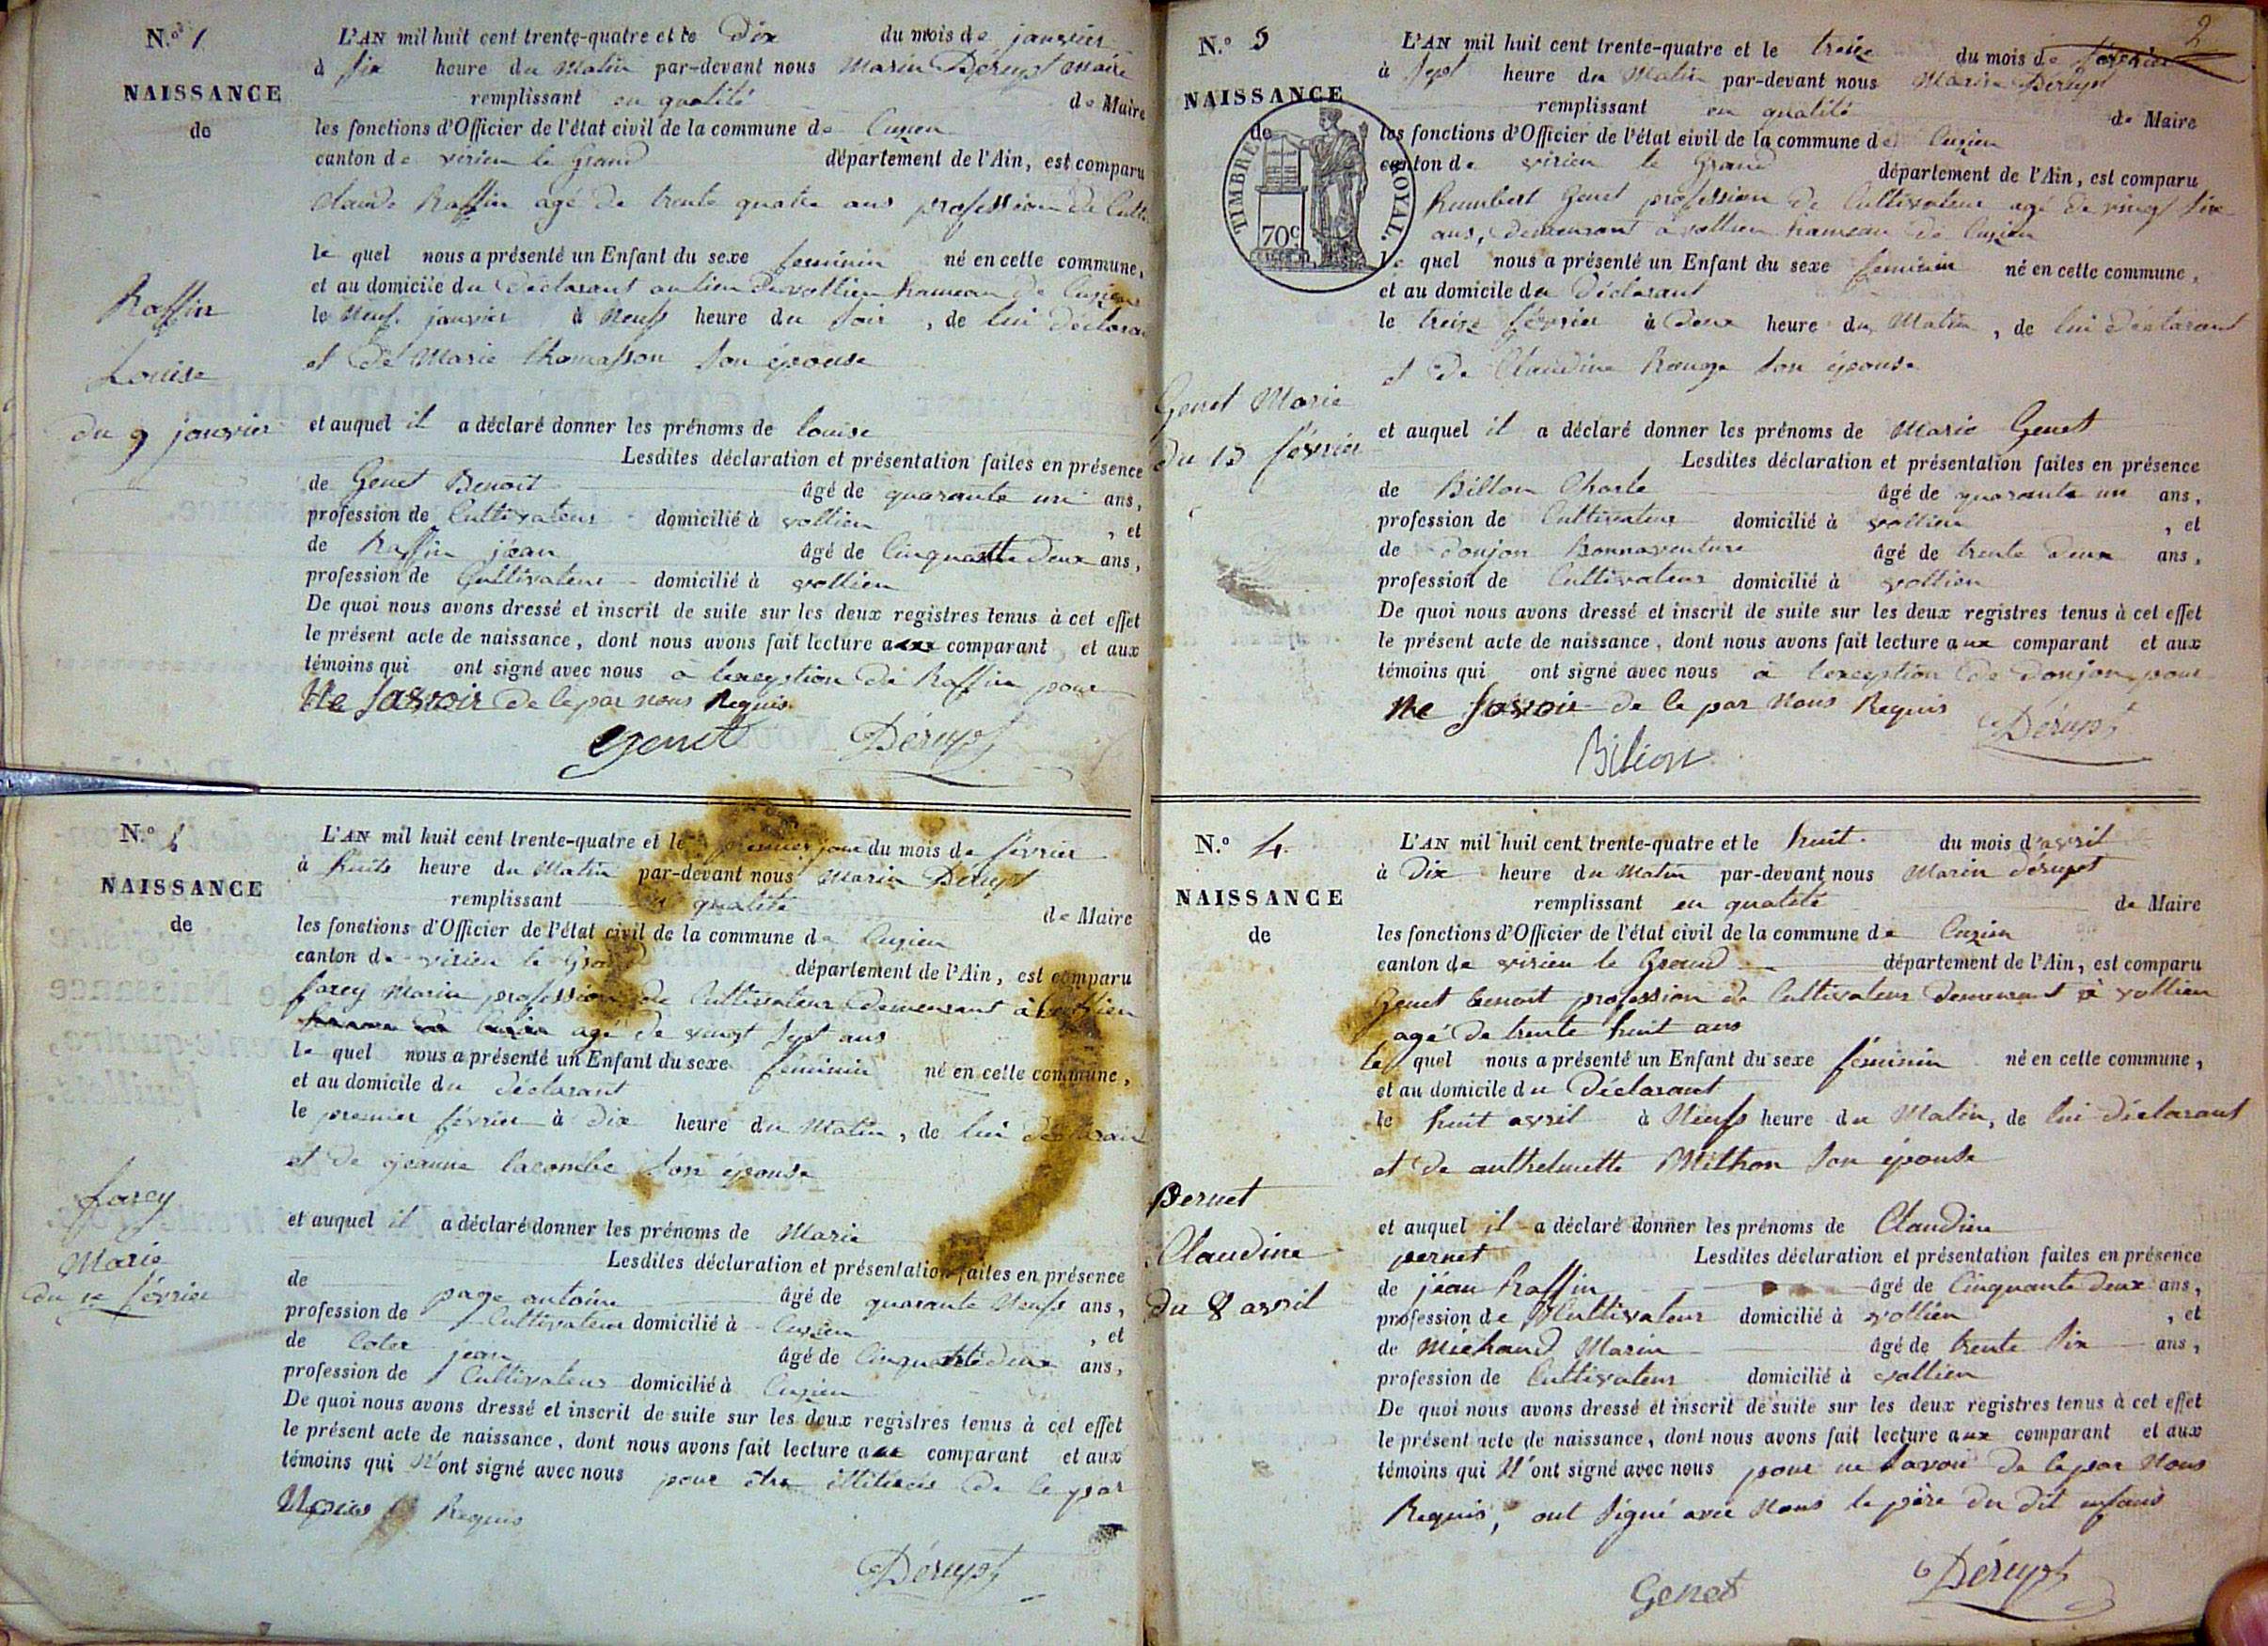 N.° 1
NAISSANCE
de
Raffin
Louise
du 9 janvier
L'AN mil huit cent trente-quatre et le dix du mois de janvier
à six heure du matin par-devant nous Marin Dérupt maire
remplissant en qualité de Maire
les fonctions d'Officier de l'état civil de la commune de Cuzieu
canton de virieu le Grand département de l'Ain, est comparu
Claude Raffin agé de trente quatre ans profession de Culti
le quel nous a présenté un Enfant du sexe feminin né en cette commune,
et au domicile du déclarant au lieu de vollien hameau de Cuzieu
le Neuf janvier à Neuf heure du soir, de lui déclarant
et de Marie thomasson son épouse
et auquel il a déclaré donner les prénoms de Louise
Lesdites déclaration et présentation faites en présence
de Genet Benoit âgé de quarante un ans,
profession de Cultivateur domicilié à vollien, et
de Raffin jean âgé de Cinquante deux ans,
profession de Cultivateur domicilié à vollien
De quoi nous avons dressé et inscrit de suite sur les deux registres tenus à cet effet
le présent acte de naissance, dont nous avons fait lecture aux comparant et aux
témoins qui ont signé avec nous à l'exception de Raffin pour
Ne savoir de le par nous Requis
Genet Dérupt
N.°
NAISSANCE
de
farcy
Marie
du 1e février
L'AN mil huit cent trente-quatre et le premier jour du mois de février
à huits heure du Matin par-devant nous Marin Dérupt
remplissant en qualité de Maire
les fonctions d'Officier de l'état civil de la commune de Cuzieu
canton de virieu le Grand département de l'Ain, est comparu
farcy Marin profession de Cultivateur demeurant à vollien
agé de vingt sept ans
le quel nous a présenté un Enfant du sexe féminin né en cette commune,
et au domicile du déclarant
le premier février à dix heure du Matin, de lui déclarant
et de jeanne lacombe son épouse
et auquel il a déclaré donner les prénoms de Marie
Lesdites déclaration et présentation faites en présence
de page antoine âgé de quarante Neufs ans,
profession de Cultivateur domicilié à Cuzieu, et
de Coter jean âgé de Cinquante deux ans,
profession de Cultivateur domicilié à Cuzieu
De quoi nous avons dressé et inscrit de suite sur les deux registres tenus à cet effet
le présent acte de naissance, dont nous avons fait lecture aux comparant et aux
témoins qui N'ont signé avec nous pour être illitérés de le par
Requis
Dérupt
2
N.° 3
NAISSANCE
de
TIMBRE ROYAL.
70c
Genet Marie
du 13 février
L'AN mil huit cent trente-quatre et le treize du mois de février
à sept heure du Matin par-devant nous Marin Dérupt
remplissant en qualité de Maire
les fonctions d'Officier de l'état civil de la commune de Cuzieu
canton de virieu le Grand département de l'Ain, est comparu
humbert Genet profession de Cultivateur agé de vingt six
ans, demeurant à vollien hameau de Cuzieu
le quel nous a présenté un Enfant du sexe feminin né en cette commune,
et au domicile du déclarant
le treize février à deux heure du Matin, de lui déclarant
et de Claudine son épouse
et auquel il a déclaré donner les prénoms de Marie Genet
Lesdites déclaration et présentation faites en présence
de Billon Charle âgé de quarante un ans,
profession de Cultivateur domicilié à vollien, et
de donjon Bonnaventure âgé de trente deux ans,
profession de Cultivateur domicilié à vollien
De quoi nous avons dressé et inscrit de suite sur les deux registres tenus à cet effet
le présent acte de naissance, dont nous avons fait lecture aux comparant et aux
témoins qui ont signé avec nous à l'exception de donjon pour
Ne savoir de le par Nous Requis
Billion Dérupt
N.° 4
NAISSANCE
de
Pernet
Claudine
du 8 avril
L'AN mil huit cent trente-quatre et le huit du mois d'avril
à dix heure du Matin par-devant nous Marin dérupt
remplissant en qualité de Maire
les fonctions d'Officier de l'état civil de la commune de Cuzieu
canton de virieu le Grand département de l'Ain, est comparu
Genet benoit profession de Cultivateur demeurant à vollien
agé de trente huit ans
le quel nous a présenté un Enfant du sexe féminin né en cette commune,
et au domicile du Déclarant
le huit avril à Neufs heure du Matin, de lui déclarant
et de anthelmette Milhon son épouse
et auquel il a déclaré donner les prénoms de Claudine
pernet Lesdites déclaration et présentation faites en présence
de jean Raffin âgé de Cinquante deux ans,
profession de Cultivateur domicilié à vollien, et
de Michaud Marin âgé de trente six ans,
profession de Cultivateur domicilié à vollien
De quoi nous avons dressé et inscrit de suite sur les deux registres tenus à cet effet
le présent acte de naissance, dont nous avons fait lecture aux comparant et aux
témoins qui N'ont signé avec nous pour ne savoir de le par Nous
Requis, ont signé avec Nous le père du dit enfant
Genet Dérupt